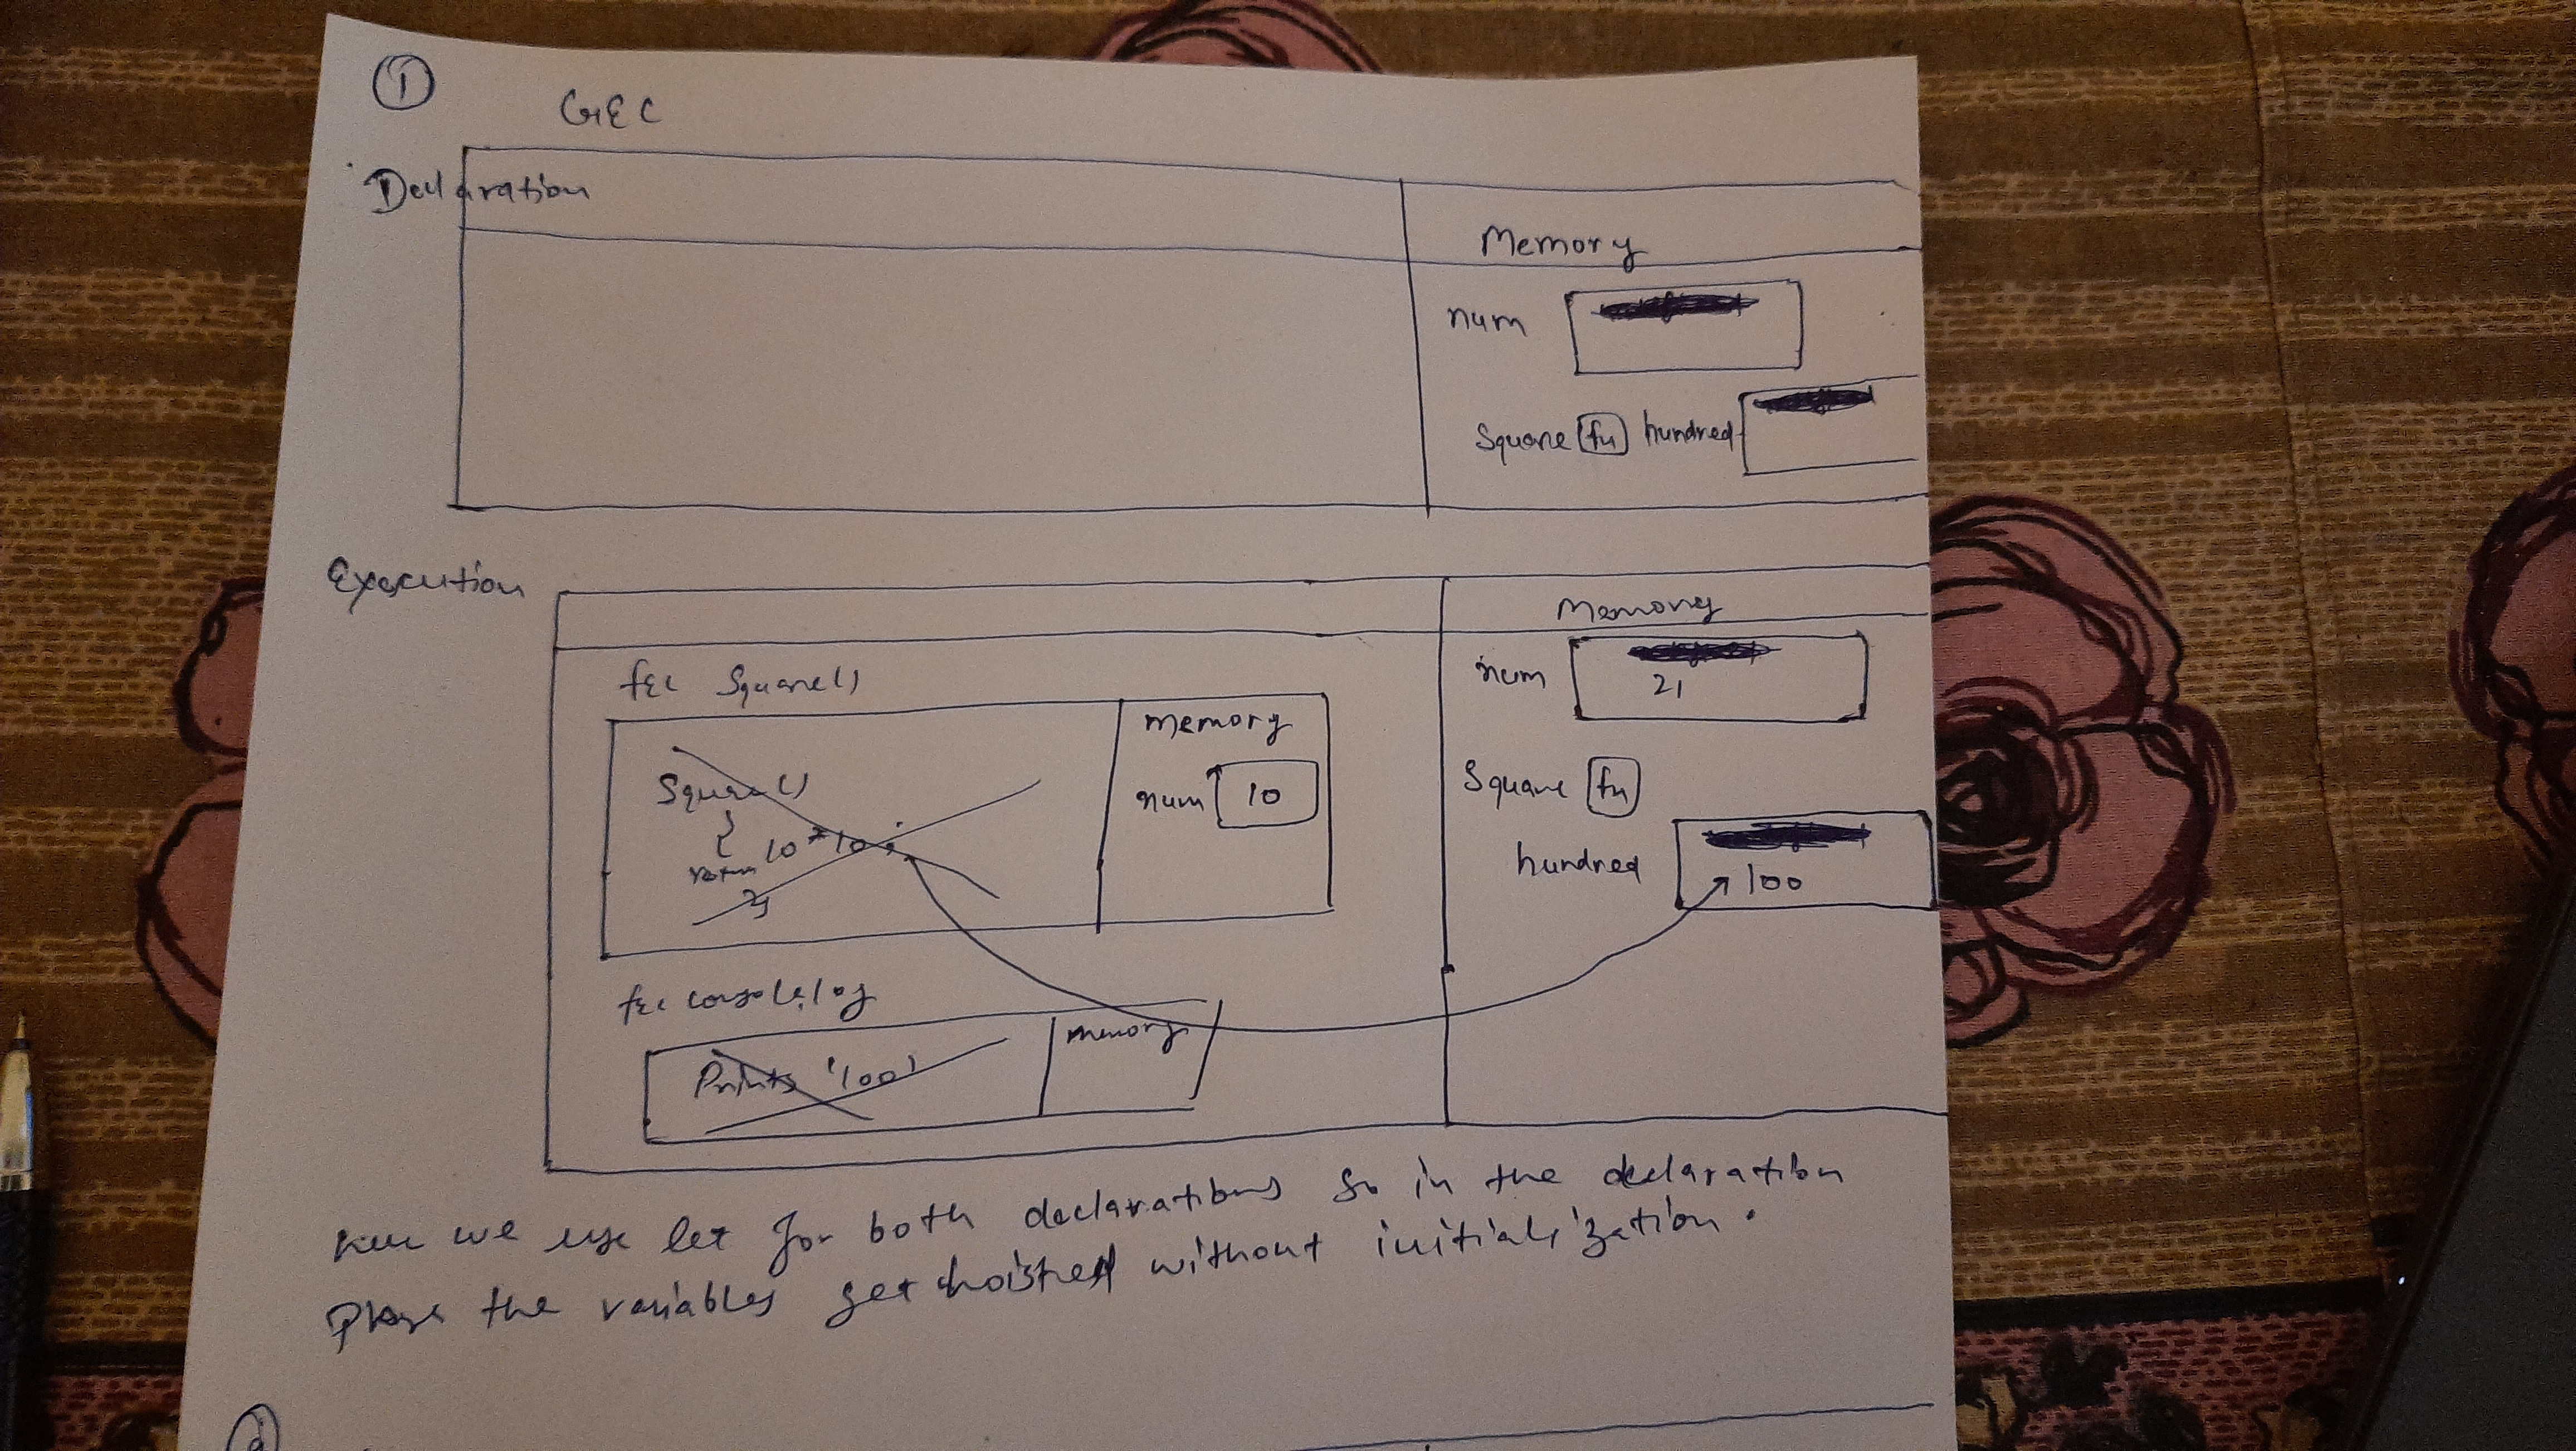 ①
GEC
Declaration
Memory
num
Square fn hundred
Execution
Memory
fec Square()
Memory
num 21
Square()
{
return 10*10;
}
num 10
Square fn
hundred 100
fec console.log
Memory
Prints '100'
we use let for both declarations So in the declaration
Phase the variables get hoisted without initialization.